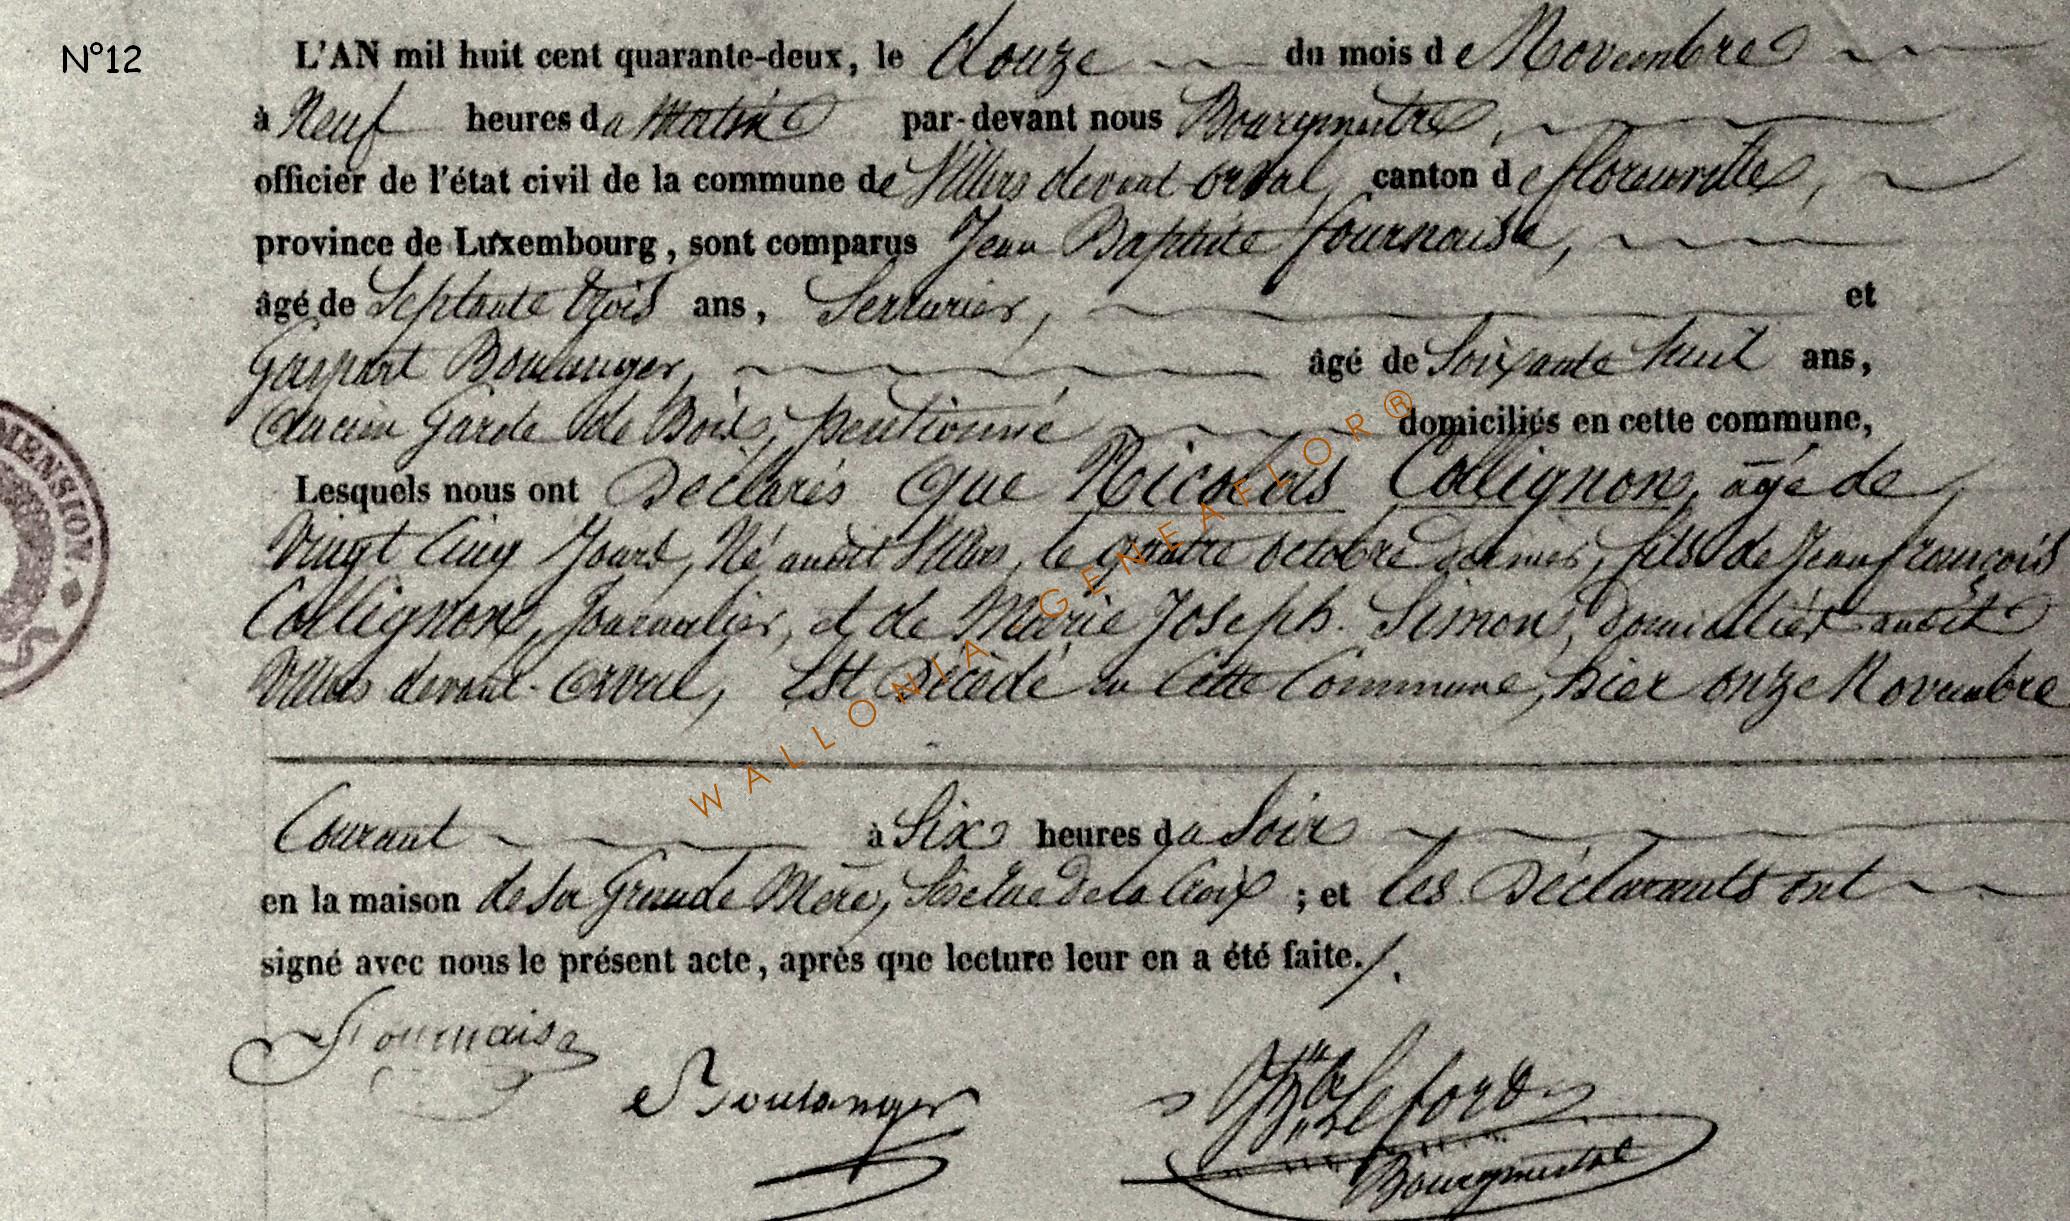 N°12
L'AN mil huit cent quarante-deux, le douze du mois de Novembre
à Neuf heures du Matin par-devant nous Bourgmestre,
officier de l'état civil de la commune de Villers devant-orval, canton de florenville,
province de Luxembourg, sont comparus Jean Baptiste fournaise,
âgé de Septante trois ans, Serrurier, et
Gaspart Boulanger, âgé de Soixante huit ans,
Ancien Garde de Bois, pentionné domiciliés en cette commune,
Lesquels nous ont Déclarés que Nicolas Collignon, âgé de
Vingt Cinq Jours, Né audit Villers, le quatre octobre dernier, fils de Jean françois
Collignon, Journalier, et de Marie Joseph. Simon, Domiciliés audit
Villers devant-orval, Est Décédé en Cette Commune, hier onze Novembre
Courant à Six heures du Soir
en la maison de sa Grande Mère, Sise rue de la Croix ; et les Déclarants ont
signé avec nous le présent acte, après que lecture leur en a été faite./.
Fournaise
Boulanger
Leford
Bourgmestre
MENSION.
WALLONIA GENEAFLOR®